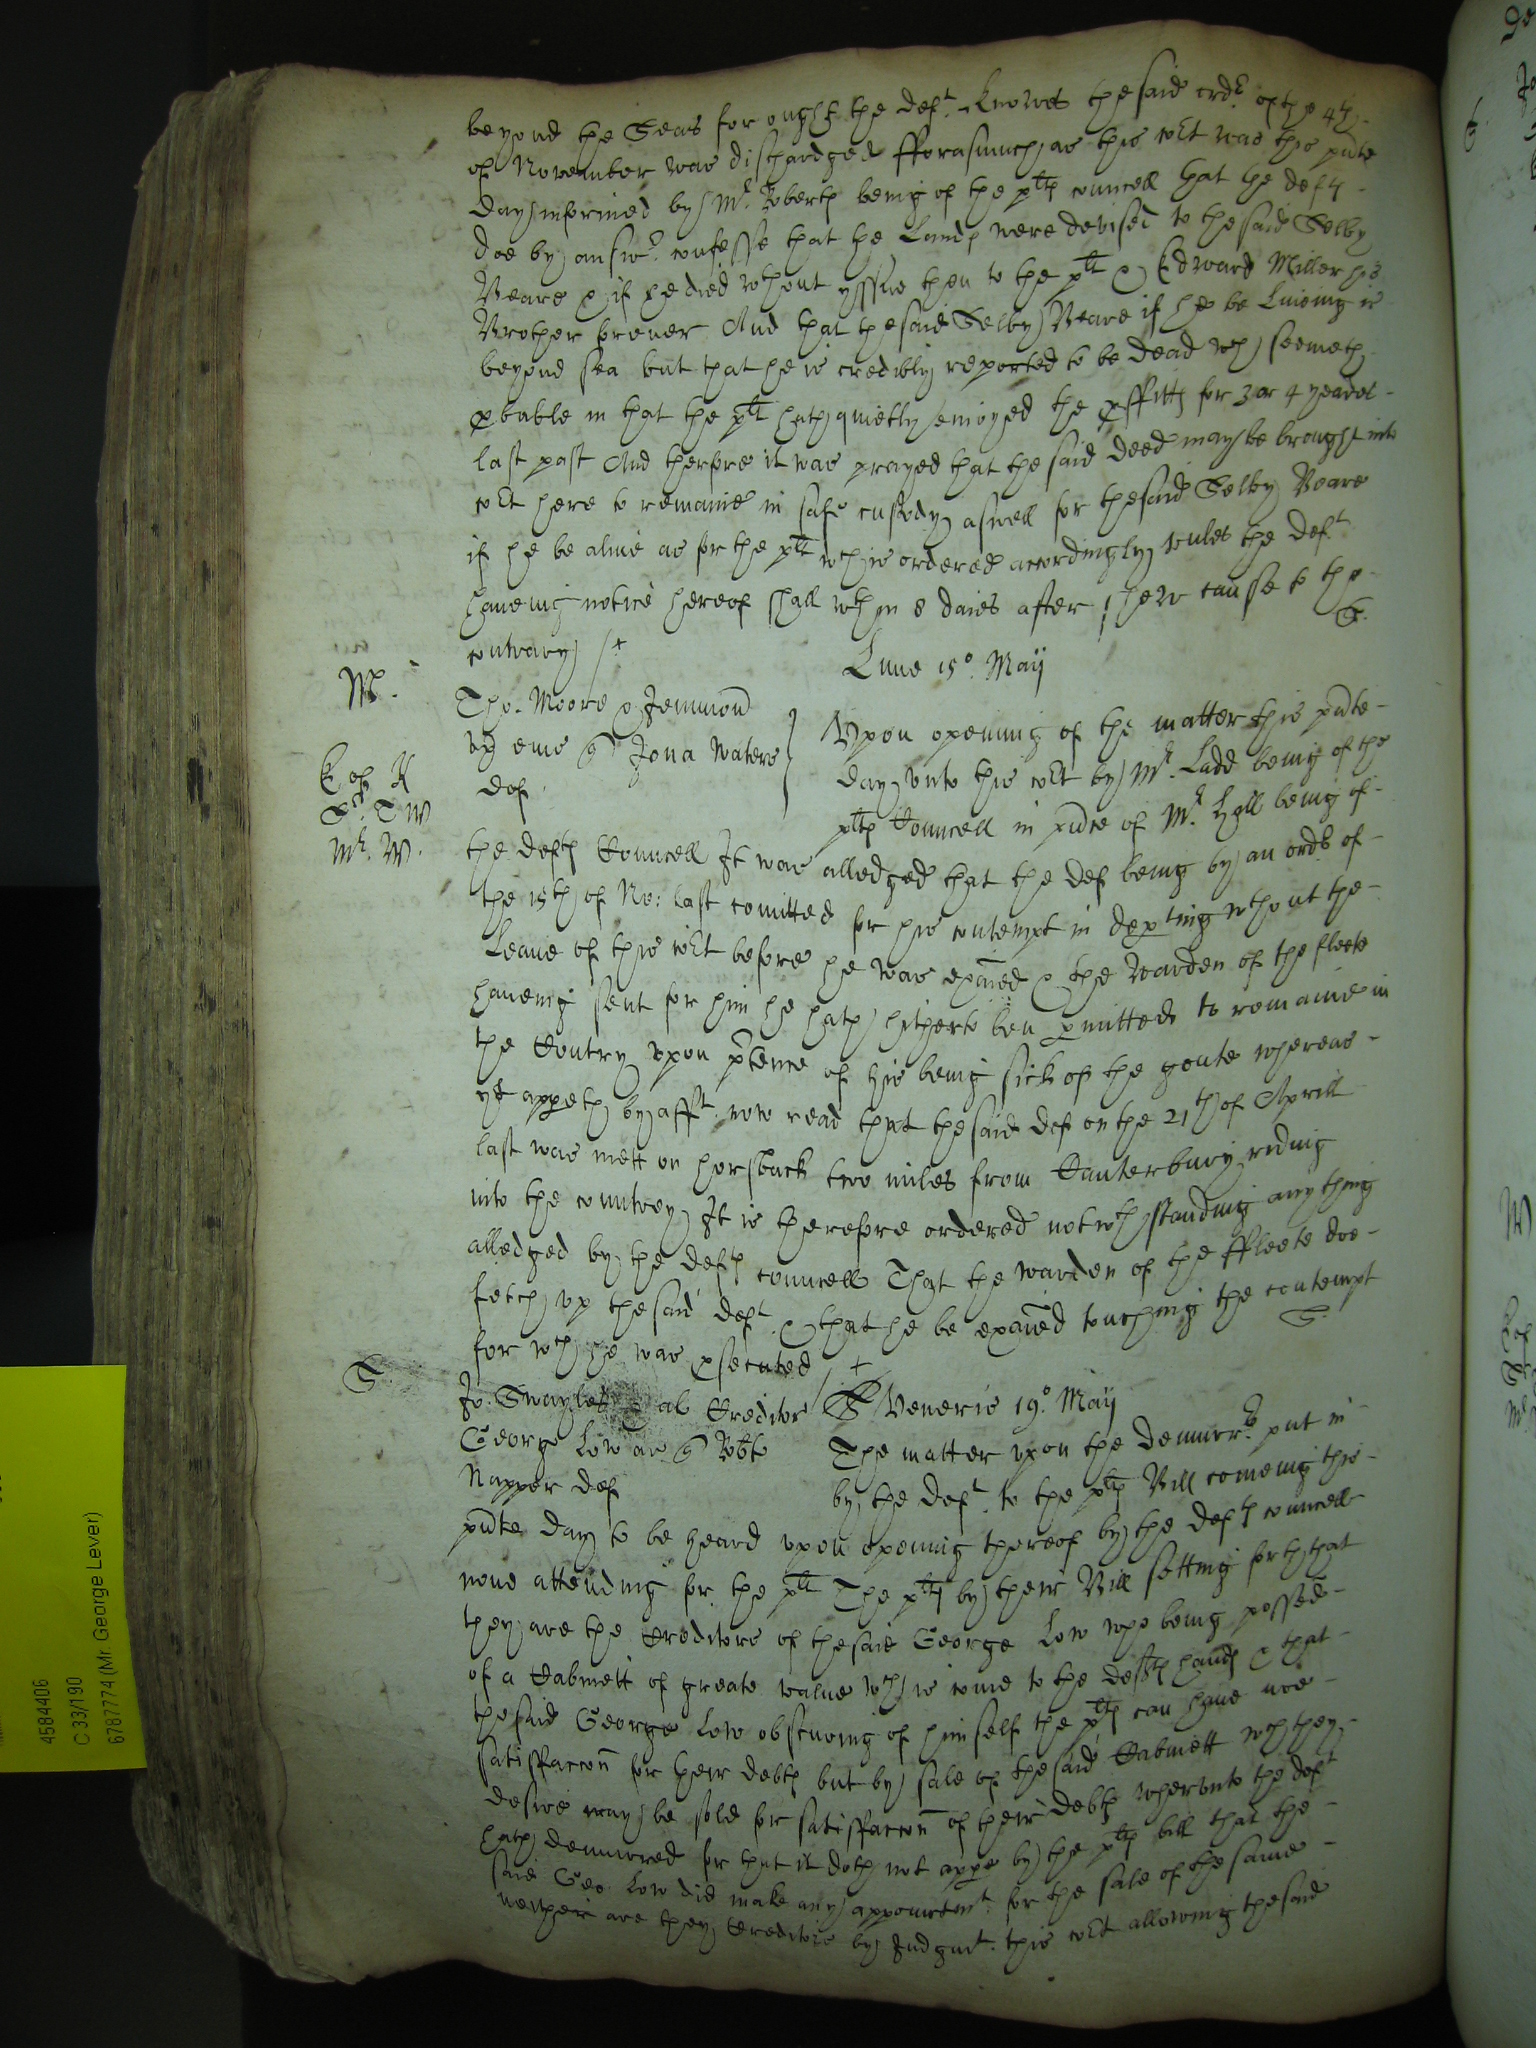 beyond the Seas for ought the deft. knowes the said ordr of the 4th
of November was dischardged fforasmuch as this Cort was this pnte
day informed by Mr. Roberts being of the plts councell that the defts
doe by answr. confesse that the Lands were devised to the said Selby
Veare & if he died wthout yssue then to the plt & Edward Miller his
Brother forever And that the said Selby Veare if he be Liveing is
beyond sea but that he is credibly reported to be dead wch seemeth
pbable in that the plt hath quietly enioyed the pffitts for 3 or 4 yeares
last past And therfore it was prayed that the said deed may be brought into
Cort here to remaine in safe custody aswell for the said Selby Veare
if he be alive as for the plt wch is ordered accordingly unles the deft.
haveing notice hereof shall wthin 8 daies after shew cause to the
contrary /
S.
Lune 15o. Maij
Mr.
Tho. Moore & Jemmond
ux eius Jona Waters
def
Upon opening of the matter this pnte
day unto this Cort by Mr. Ladd being of the
plts Councell in pnce of Mr. Hall being of
the defts Councell It was alledged that the def being by an ordr of
the 15th of No: last comitted for his contempt in depting wthout the
Leave of this Cort before he was exaied & the warden of the fleete
haveing sent for him he hath hitherto ben pmitted to remaine in
the Contry upon ptence of his being sick of the goute whereas
yt appeth by afft. now read that the said def on the 21th of Aprill
last was mett on horsback two miles from Canterbury riding
into the countrey It is therefore ordered notwthstanding any thing
alledged by the defts councell That the warden of the ffleete doe
fetch up the said deft. & that he be exaied touching the contempt
for wch he was psecuted
S.
S.
Jo. Swayles & al Creditors
George Low ar Robte
Napper def
Veneris 19o. Maij
The matter upon the demurrr. put in
by the deft. to the plts Bill comeing this
pnte day to be heard upon opening thereof by the defts councell
none attending for the plt The plts by their Bill setting forth that
they are the Creditors of the said George Low who being possed
of a Cabinett of greate value wch is come to the defts hands & that
the said George Low obscuring of himself the plts can have noe
satisfaccon for their debts but by sale of the said Cabinett wch they
desire may be sold for satisfaccon of their debts wherunto the deft
hath demurred for that it doth not appe by the plts bill that the
said Geo Low did make any appointmt. for the sale of the same
neither are they Creditors by Judgmt. this Cort allowing the said
4584406
C 33/190
6787774 (Mr. George Lever)